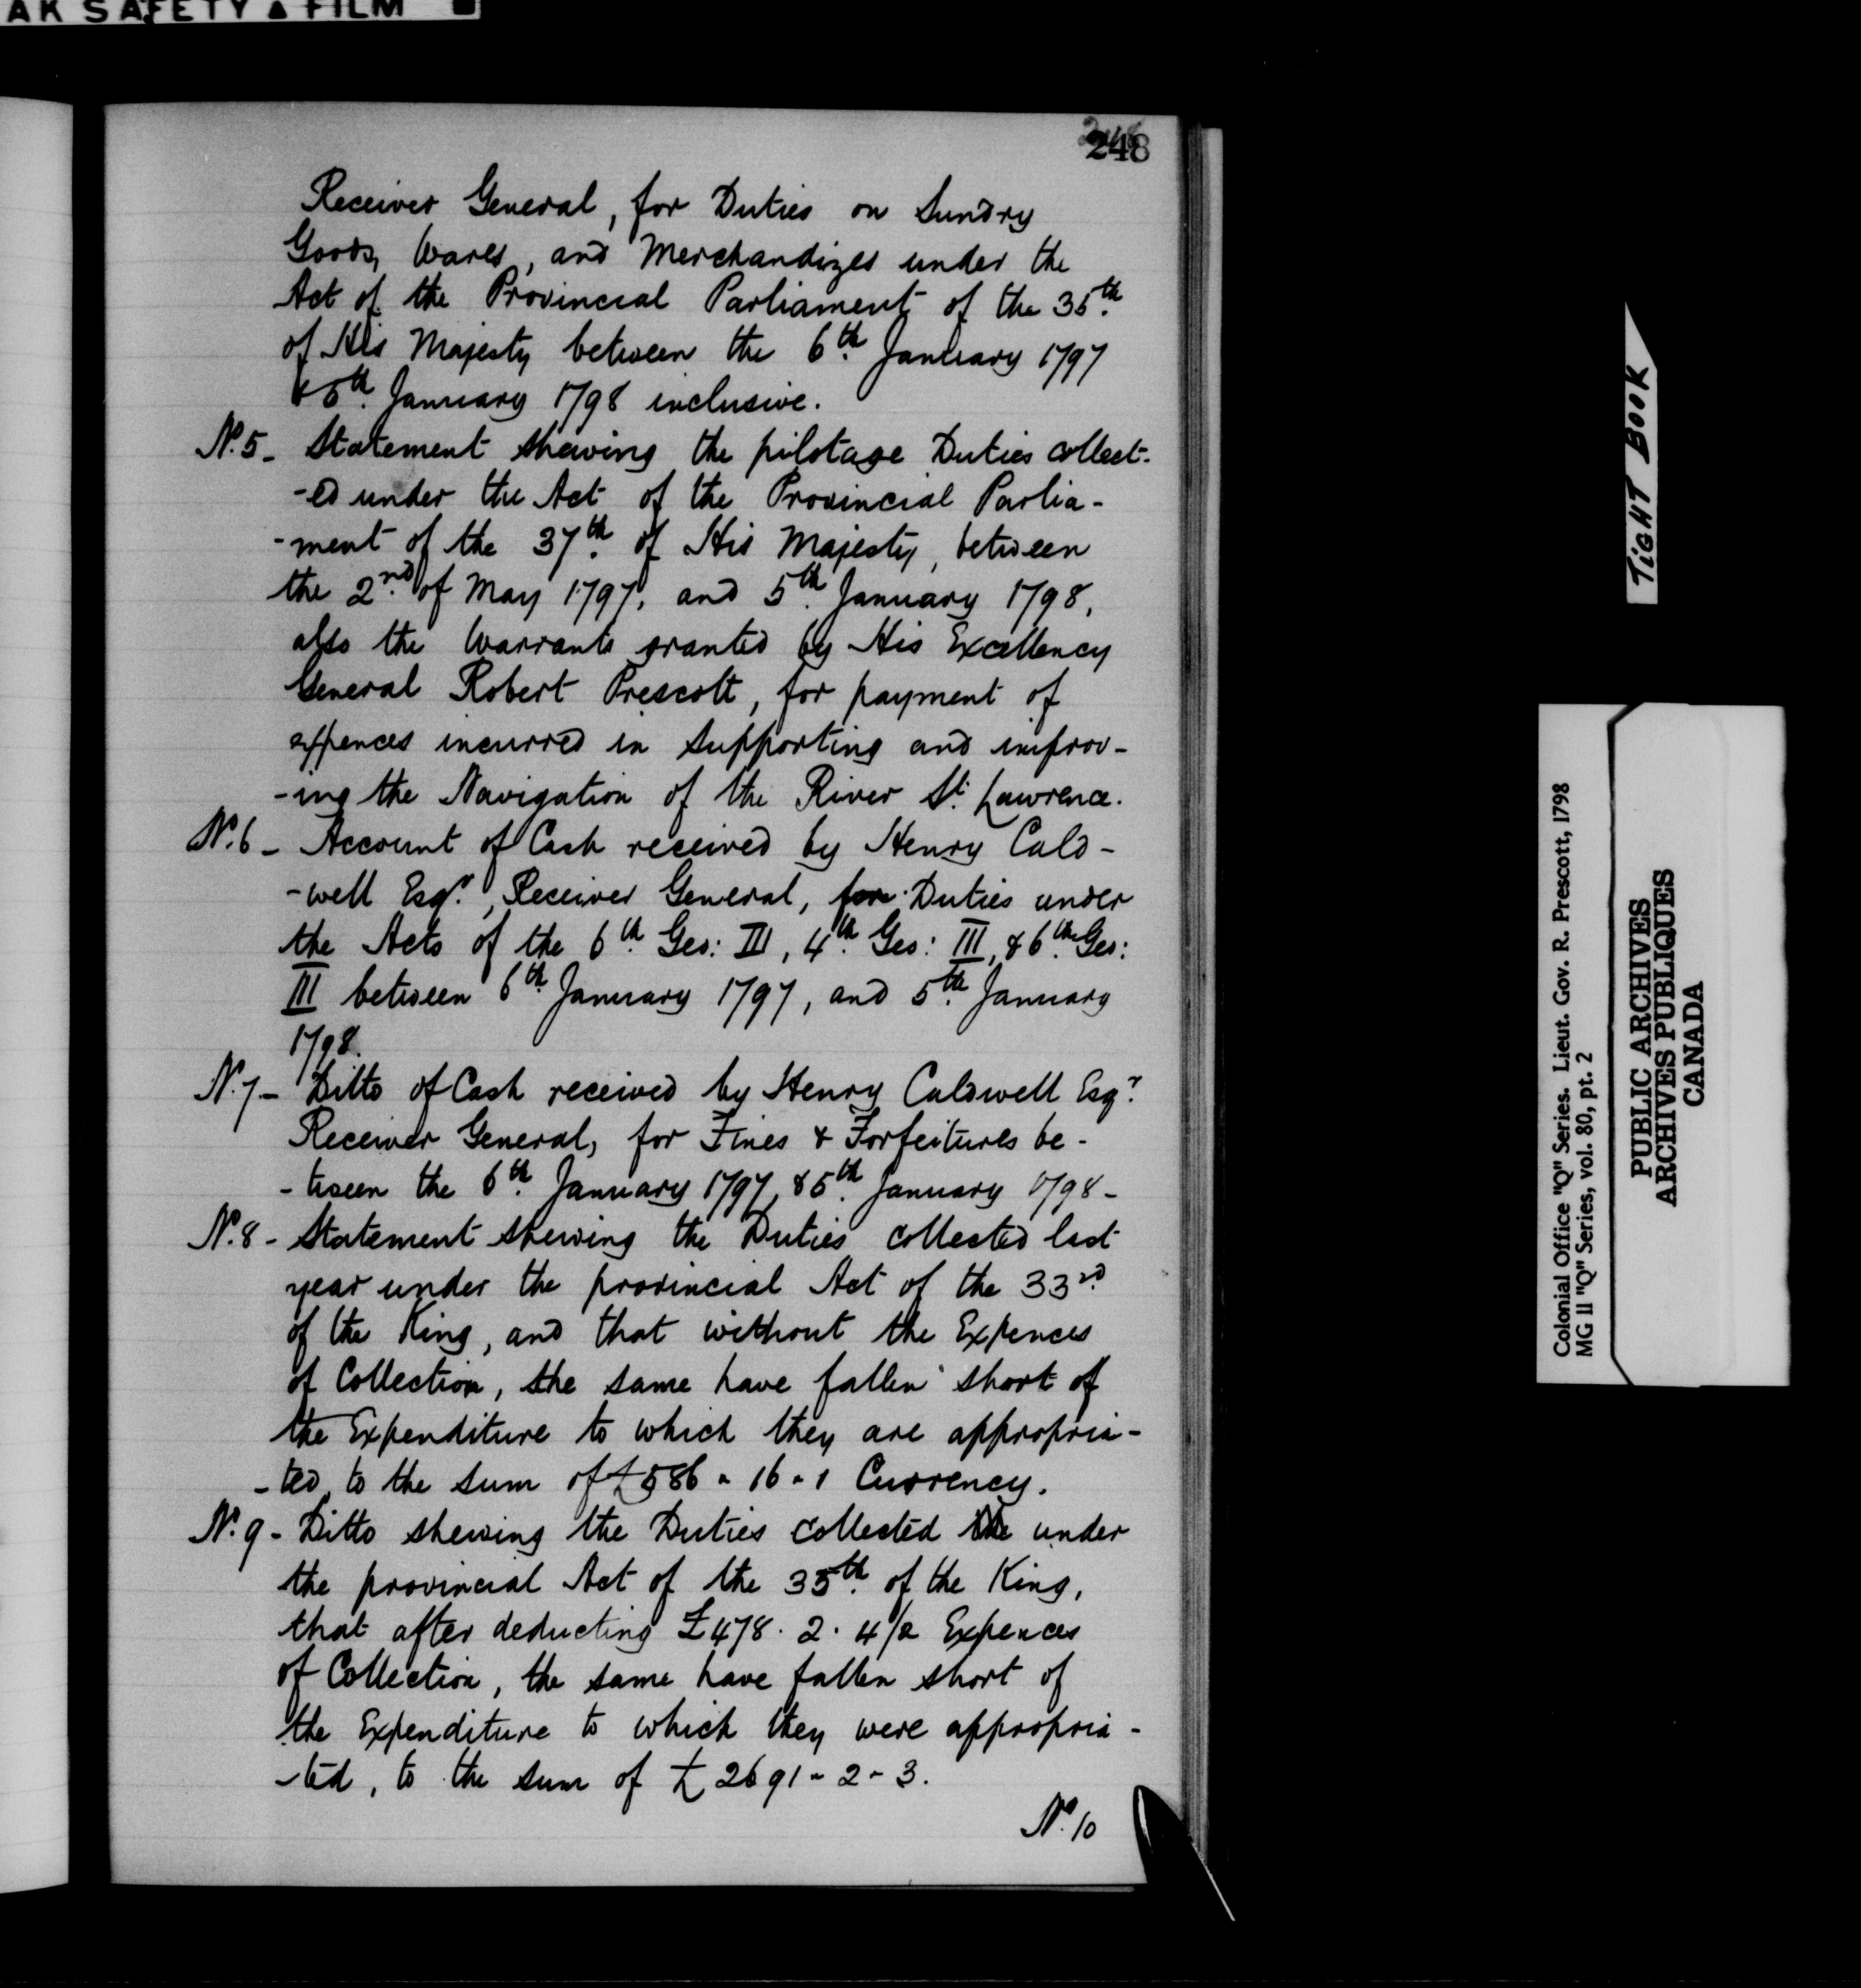 AK SAFETY ▲ FILM
248
Receiver General, for Duties on Sundry
Goods, Wares, and Merchandizes under the
Act of the Provincial Parliament of the 35th.
of His Majesty between the 6th. January 1797
& 5th. January 1798 inclusive.
No. 5 - Statement shewing the pilotage Duties collect-
-ed under the Act of the Provincial Parlia-
-ment of the 37th. of His Majesty, between
the 2nd. of May 1797, and 5th. January 1798,
also the Warrants granted by His Excellency
General Robert Prescott, for payment of
expences incurred in supporting and improv-
-ing the Navigation of the River St. Lawrence.
No. 6 - Account of Cash received by Henry Cald-
-well Esqr., Receiver General, for Duties under
the Acts of the 6th. Geo: III, 4th. Geo: III, & 6th. Geo:
III between 6th. January 1797, and 5th. January
1798.
No. 7 - Ditto of Cash received by Henry Caldwell Esqr.
Receiver General, for Fines & Forfeitures be-
-tween the 6th. January 1797, & 5th. January 1798 -
No. 8 - Statement shewing the Duties collected last
year under the provincial Act of the 33rd.
of the King, and that without the Expences
of Collection, the same have fallen short of
the Expenditure to which they are appropria-
-ted, to the sum of £586 - 16 - 1 Currency.
No. 9 - Ditto shewing the Duties collected the under
the provincial Act of the 35th. of the King,
that after deducting £478. 2. 4/2 Expences
of Collection, the same have fallen short of
the Expenditure to which they were appropria-
-ted, to the sum of £2691 - 2 - 3.
No. 10
TIGHT BOOK
Colonial Office "Q" Series. Lieut. Gov. R. Prescott, 1798
MG 11 "Q" Series, vol. 80, pt. 2
PUBLIC ARCHIVES
ARCHIVES PUBLIQUES
CANADA